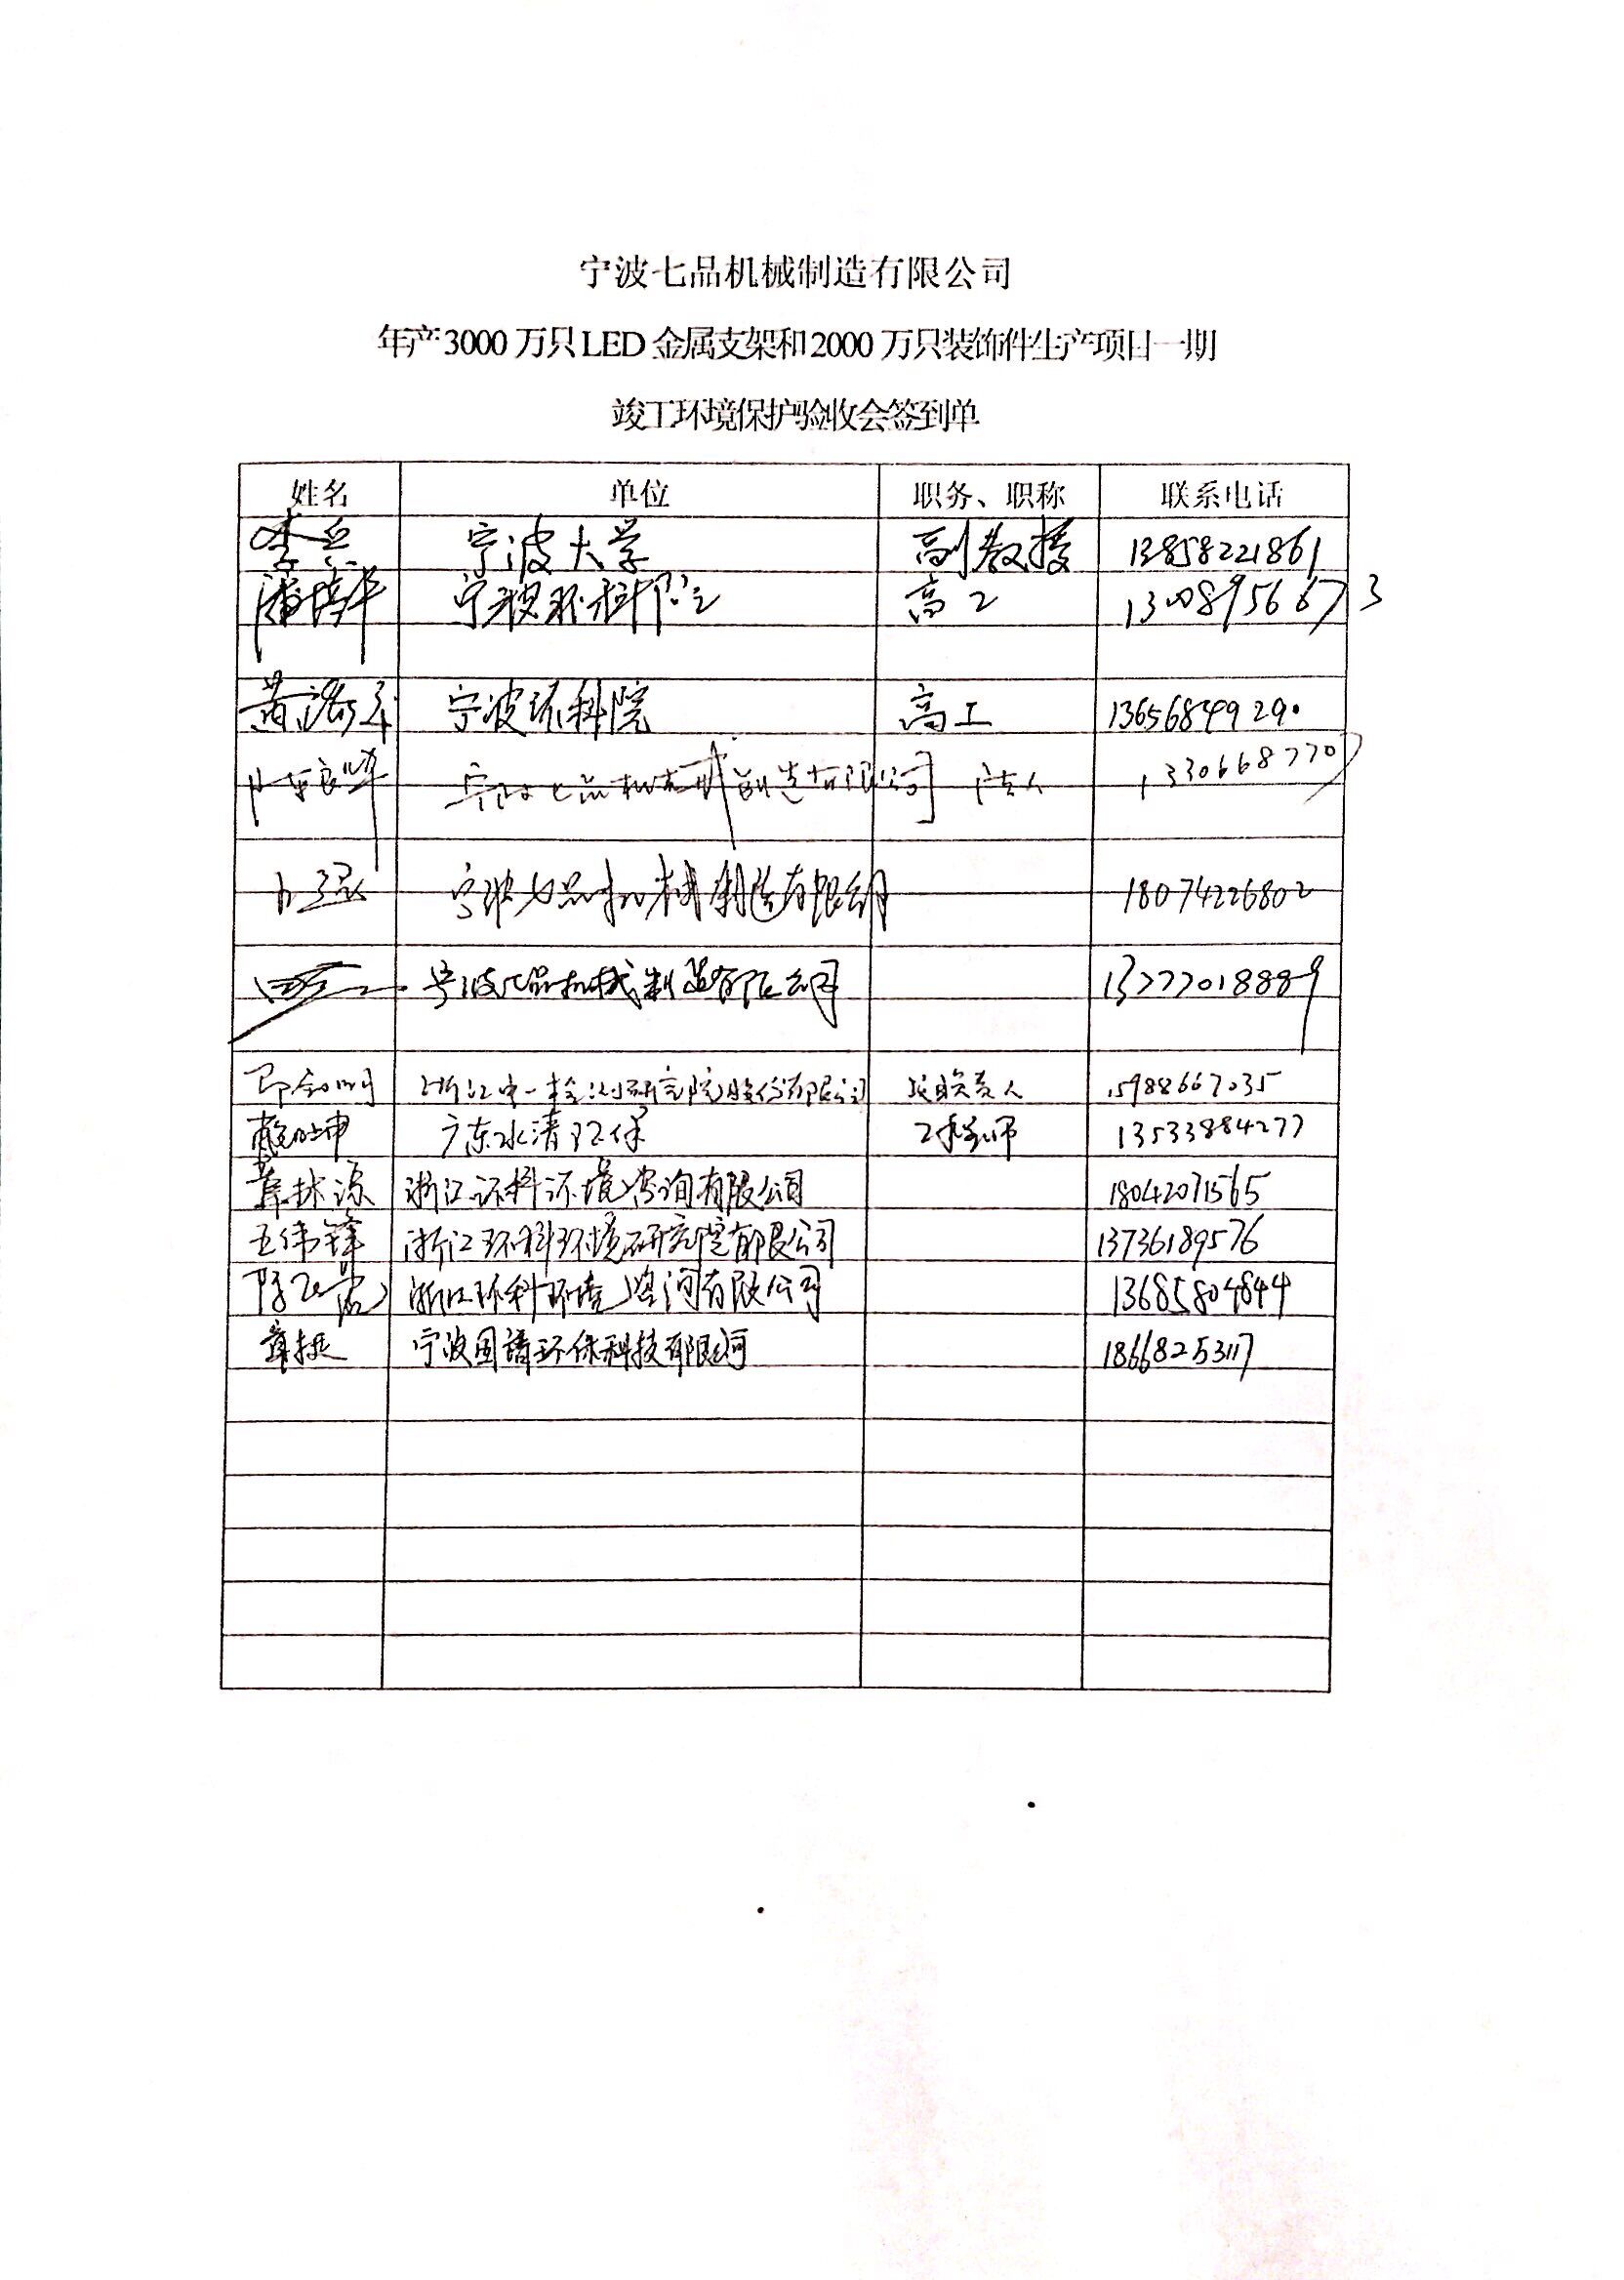 宁波七品机械制造有限公司
年产3000万只LED金属支架和2000万只装饰件生产项目一期
竣工环境保护验收会签到单
姓名 单位 职务、职称 联系电话
李兵 宁波大学 副教授 13858221861
潘 华 宁波环科院 高工 13008956673
黄 宁波环科院 高工 13656849290
宁波七品机械制造有限公司 法人 13306687707
宁波七品机械制造有限公司 18074226802
宁波七品机械制造有限公司 13777018889
浙江中一检测研究院股份有限公司 负责人 15988667035
广东水清环保 工程师 13533884277
章林源 浙江环科环境咨询有限公司 18042071565
王伟锋 浙江环科环境研究院有限公司 13736189576
浙江环科环境咨询有限公司 13685804844
章挺 宁波国靖环保科技有限公司 18668253117